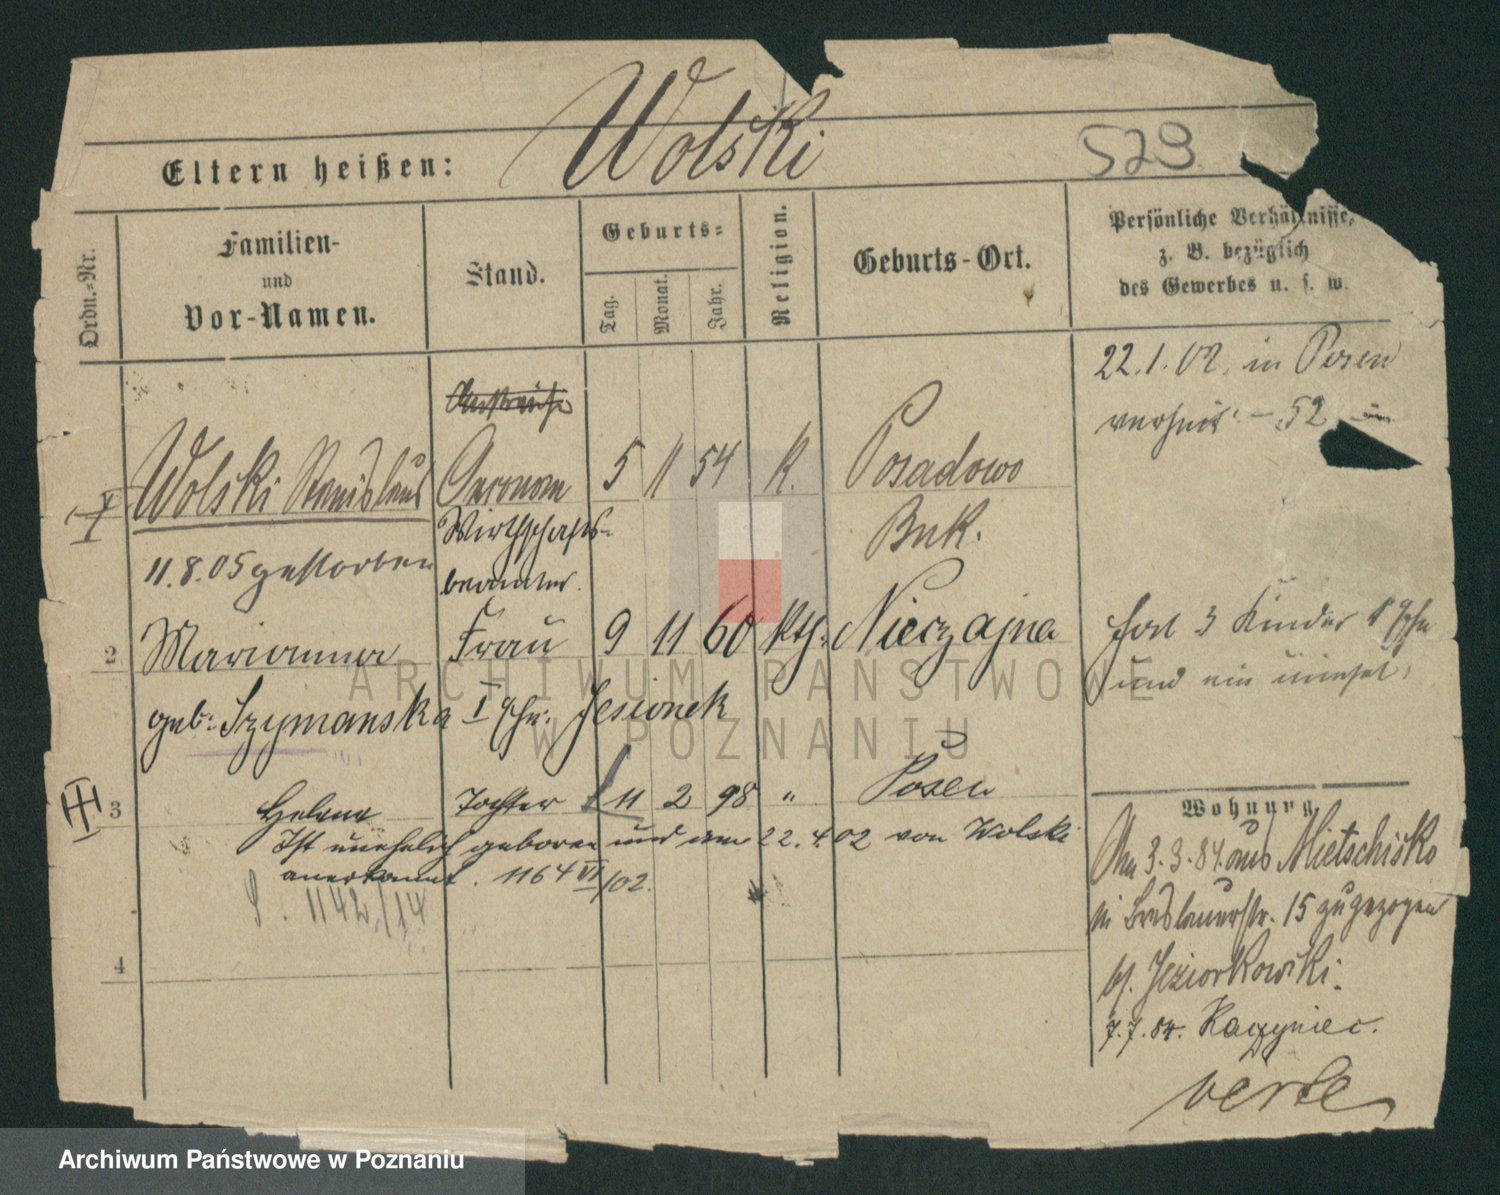 Wolski
529
Eltern heißen:
Ordn.-Nr.
Familien-
und
Vor-Namen.
Stand.
Geburts-
Tag.
Monat.
Jahr.
Religion.
Geburts-Ort.
Persönliche Verhältnisse,
z. B. bezüglich
des Gewerbes u. s. w.
22.1.02. in Posen
verheir. - 52
Wolski Stanislaus
Oeconom
5 11 54 K. Posadowo
Wirthschafts-
beamter.
Buk.
11.8.05 gestorben
2 Marianna Frau 9 11 60 kth. Nieczajna
geb: Szymanska I Ehe: Jesionek
hat 3 Kinder I Ehe
und ein unehel.
3 Helena Tochter 11 2 98 " Posen
Ist unehelich geboren und am 22.4.02 von Wolski
anerkannt. 1164 VI/02.
1142/14
4
Wohnung
Am 3.3.84. aus Mietschisko
in Breslauerstr. 15 zugezogen
bf. Jeziorkowski.
7.7.84. Raczyniec.
verte
ARCHIWUM PAŃSTWOWE
W POZNANIU
Archiwum Państwowe w Poznaniu